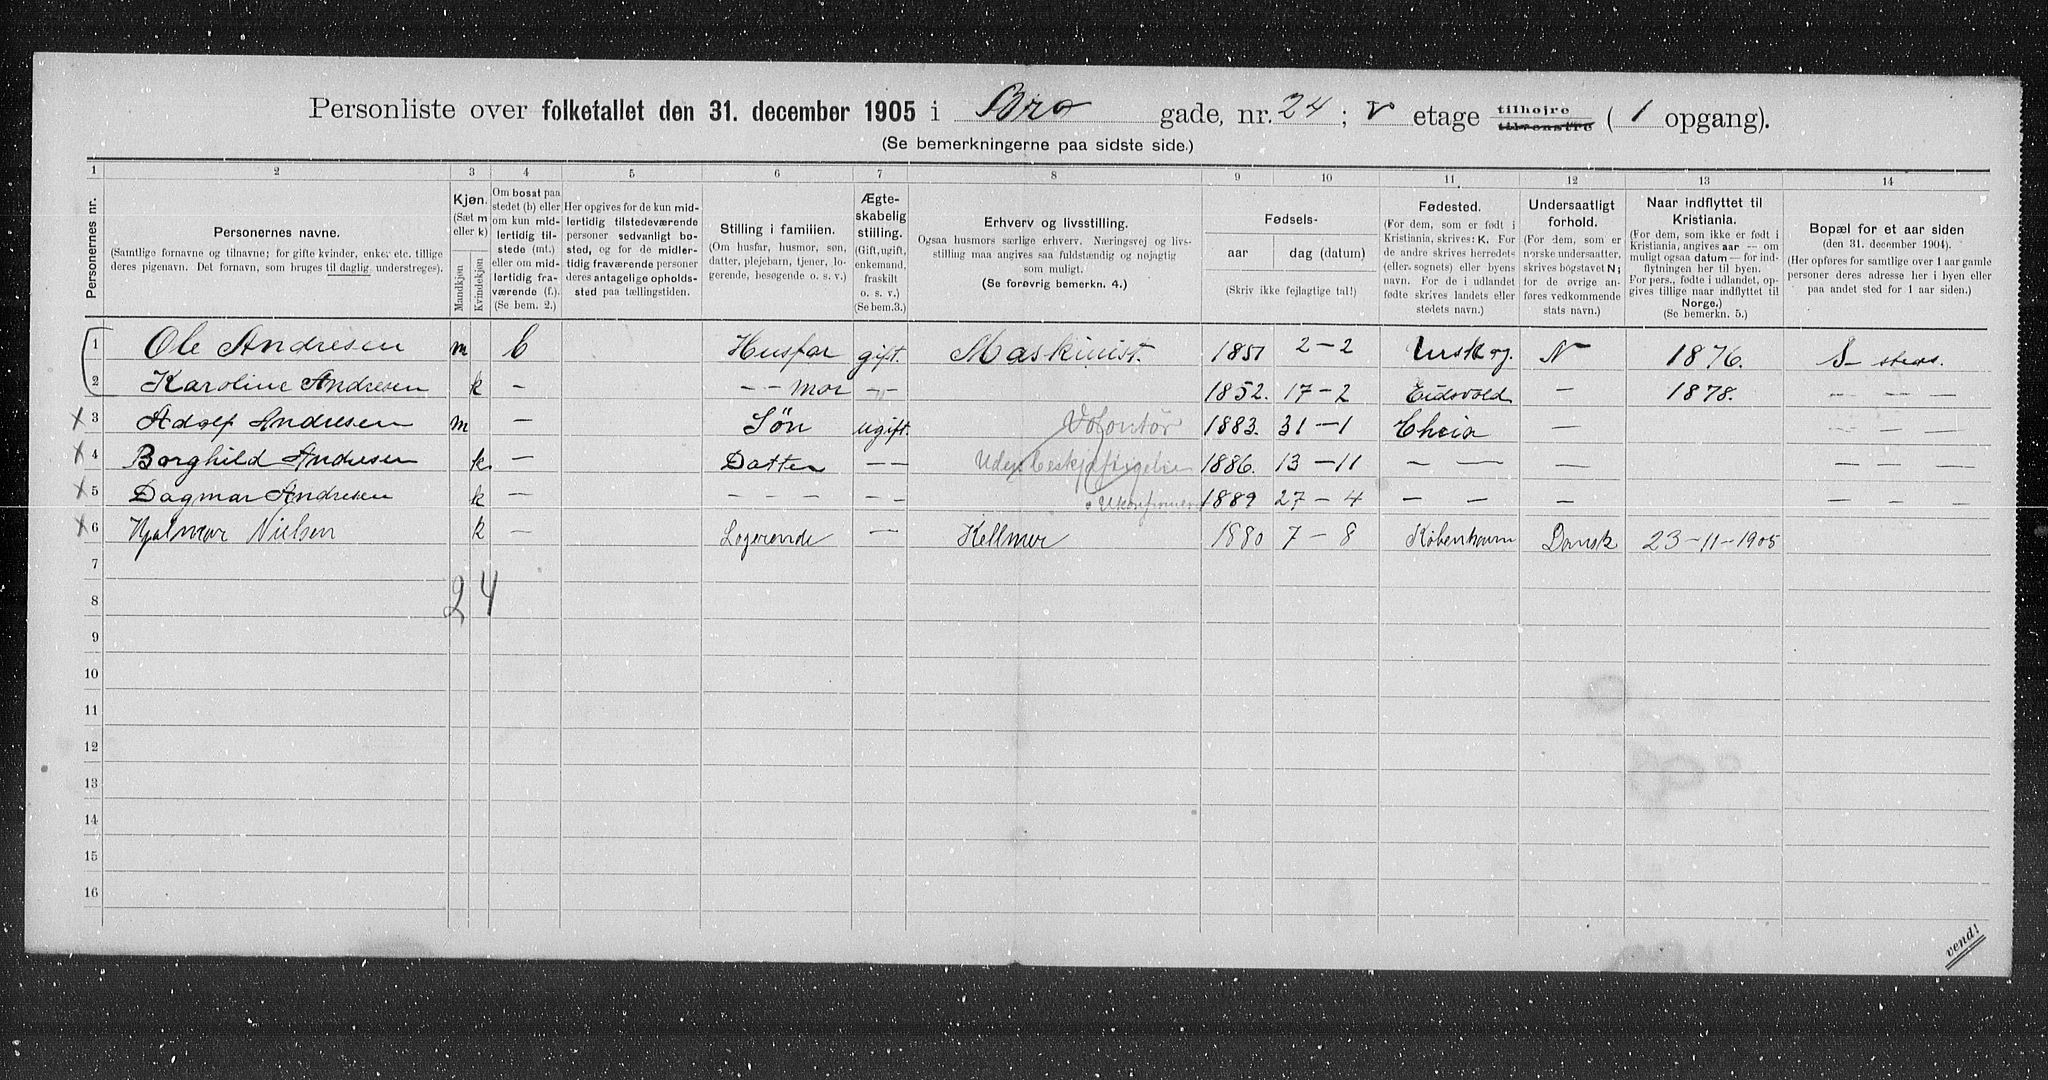 Personliste over folketallet den 31. december 1905 i Bro gade, nr. 24; V etage tilhøjre tilvenstre (1 opgang).
(Se bemerkningerne paa sidste side.)
1 2 3 4 5 6 7 8 9 10 11 12 13 14
Personernes nr.
Personernes navne.
(Samtlige fornavne og tilnavne; for gifte kvinder, enker etc. tillige deres pigenavn. Det fornavn, som bruges til daglig understreges).
Kjøn.
(Sæt m eller k)
Mandkjøn
Kvindekjøn
Om bosat paa stedet (b) eller om kun midlertidig tilstede (mt.) eller om midlertidig fraværende (f.).
(Se bem. 2.)
Her opgives for de kun midlertidig tilstedeværende personer sedvanligt bosted, og for de midlertidig fraværende personer deres antagelige opholdssted paa tællingstiden.
Stilling i familien.
(Om husfar, husmor, søn, datter, plejebarn, tjener, logerende, besøgende o. s. v.)
Ægteskabelig stilling.
(Gift, ugift, enkemand, fraskilt o. s. v.)
(Se bem. 3.)
Erhverv og livsstilling.
Ogsaa husmors særlige erhverv. Næringsvej og livsstilling maa angives saa fuldstændig og nøjagtig som muligt.
(Se forøvrig bemerkn. 4.)
Fødsels-
aar
dag (datum)
(Skriv ikke fejlagtige tal!)
Fødested.
(For dem, som er født i Kristiania, skrives: K. For de andre skrives herredets (eller. sognets) eller byens navn. For de i udlandet fødte skrives landets eller stedets navn.)
Undersaatligt forhold.
(For dem, som er norske undersaatter, skrives bogstavet N; for de øvrige anføres vedkommende stats navn.)
Naar indflyttet til Kristiania.
(For dem, som ikke er født i Kristiania, angives aar — om muligt ogsaa datum — for indflytningen her til byen. For pers., fødte i udlandet, opgives tillige naar indflyttet til Norge.)
(Se bemerkn. 5.)
Bopæl for et aar siden
(den 31. december 1904).
(Her opføres for samtlige over 1 aar gamle personer deres adresse her i byen eller paa andet sted for 1 aar siden.)
1 Ole Andresen m b Husfar gift. Maskinist. 1851 2-2 Urskog. N 1876. S steds.
2 Karoline Andresen k — - - mor - - 1852. 17-2 Eidsvold — 1878. — — —
X 3 Adolf Andresen m — Søn ugift. Volontør 1883. 31-1 Chria — — — —
X 4 Borghild Andresen k. — Datter — — Uden beskjæftigelse 1886. 13-11 — — — — — —
X 5 Dagmar Andresen k — — — — — — 1889 27-4 — — — — — —
X 6 Hjalmar Nielsen k — Logerende — Kellner 1880 7-8 København Dansk 23-11-1905
7
24
8
9
10
11
12
13
14
15
16
vend!